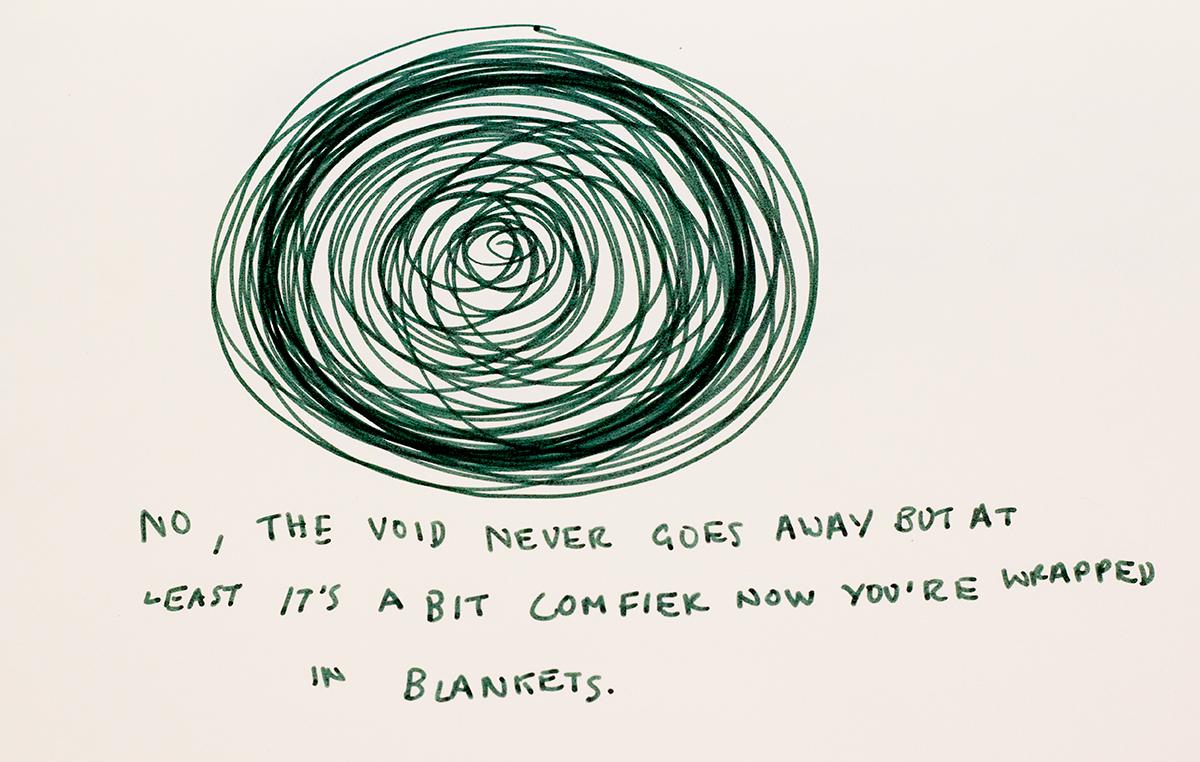 NO, THE VOID NEVER GOES AWAY BUT AT
LEAST IT'S A BIT COMFIER NOW YOU'RE WRAPPED
IN BLANKETS.